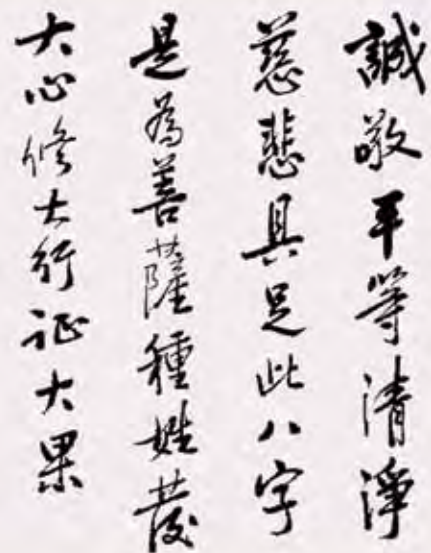 誠敬平等清淨
慈悲具足此八字
是為善薩種姓發
大心修大行证大果